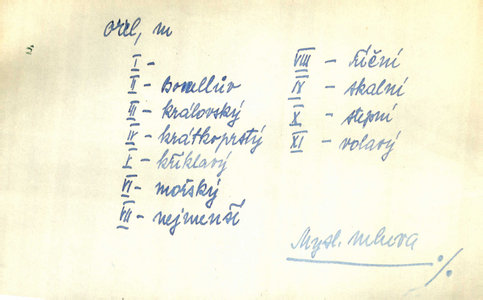 orel, m
I -
II - Bonelliův
III - královský
IV - krátkoprstý
V - křiklavý
VI - mořský
VII - nejmenší
VIII - říční
IX - skalní
X - stepní
XI - volavý
Mysl. mluva